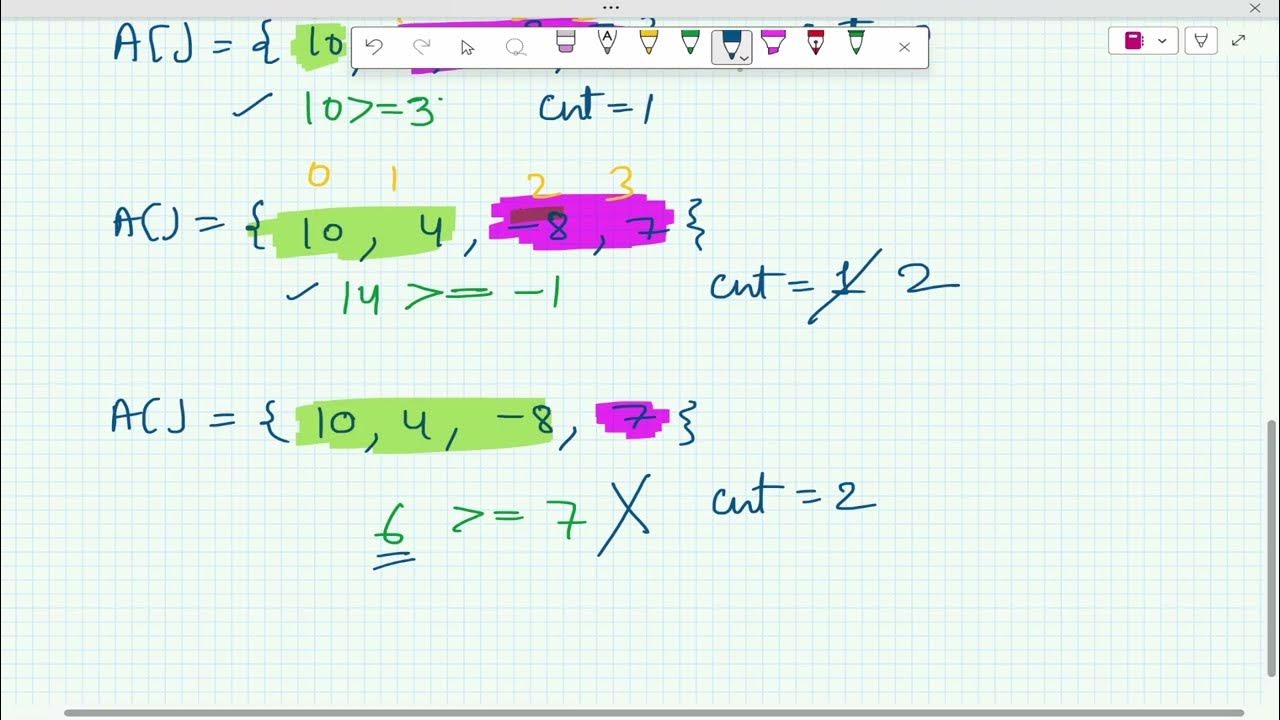 A[] = { 10,
✓ 10>=3 cnt=1
0 1 2 3
A[] = { 10, 4, -8, 7 }
✓ 14 >= -1 cnt = 1 2
A[] = { 10, 4, -8, 7 }
6 >= 7 X cnt = 2